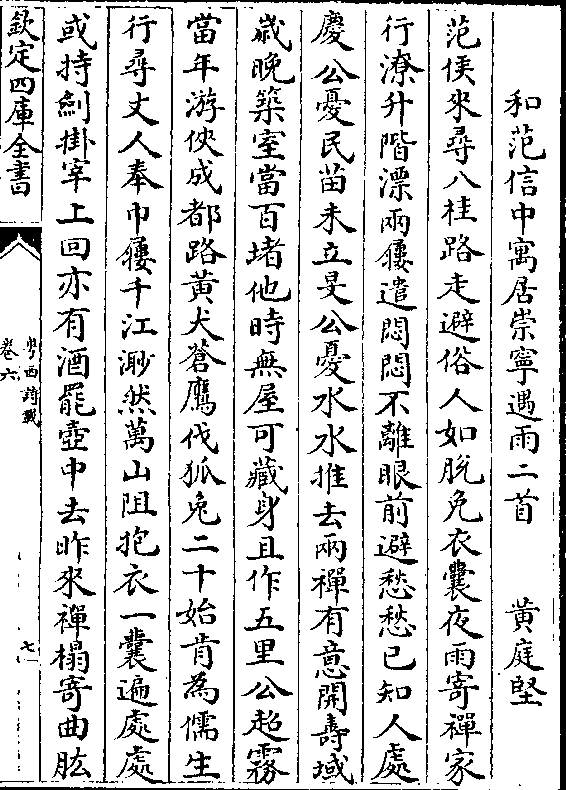 和范信中寓居崇寧遇雨二首　　黄庭堅
范侯來尋八桂路走避俗人如脱兔衣囊夜雨寄禪家
行潦升階漂兩屨遣悶悶不離眼前避愁愁已知人處
慶公憂民苗未立旻公憂水水推去兩禪有意開壽域
嵗晚築室當百堵他時無屋可藏身且作五里公超霧
當年游俠成都路黄犬蒼鷹伐狐兔二十始肯為儒生
行尋丈人奉巾屨千江渺然萬山阻抱衣一囊遍處處
或持劍掛宰上回亦有酒罷壺中去昨來禪榻寄曲肱
欽定四庫全書
粤西詩載
卷六
七